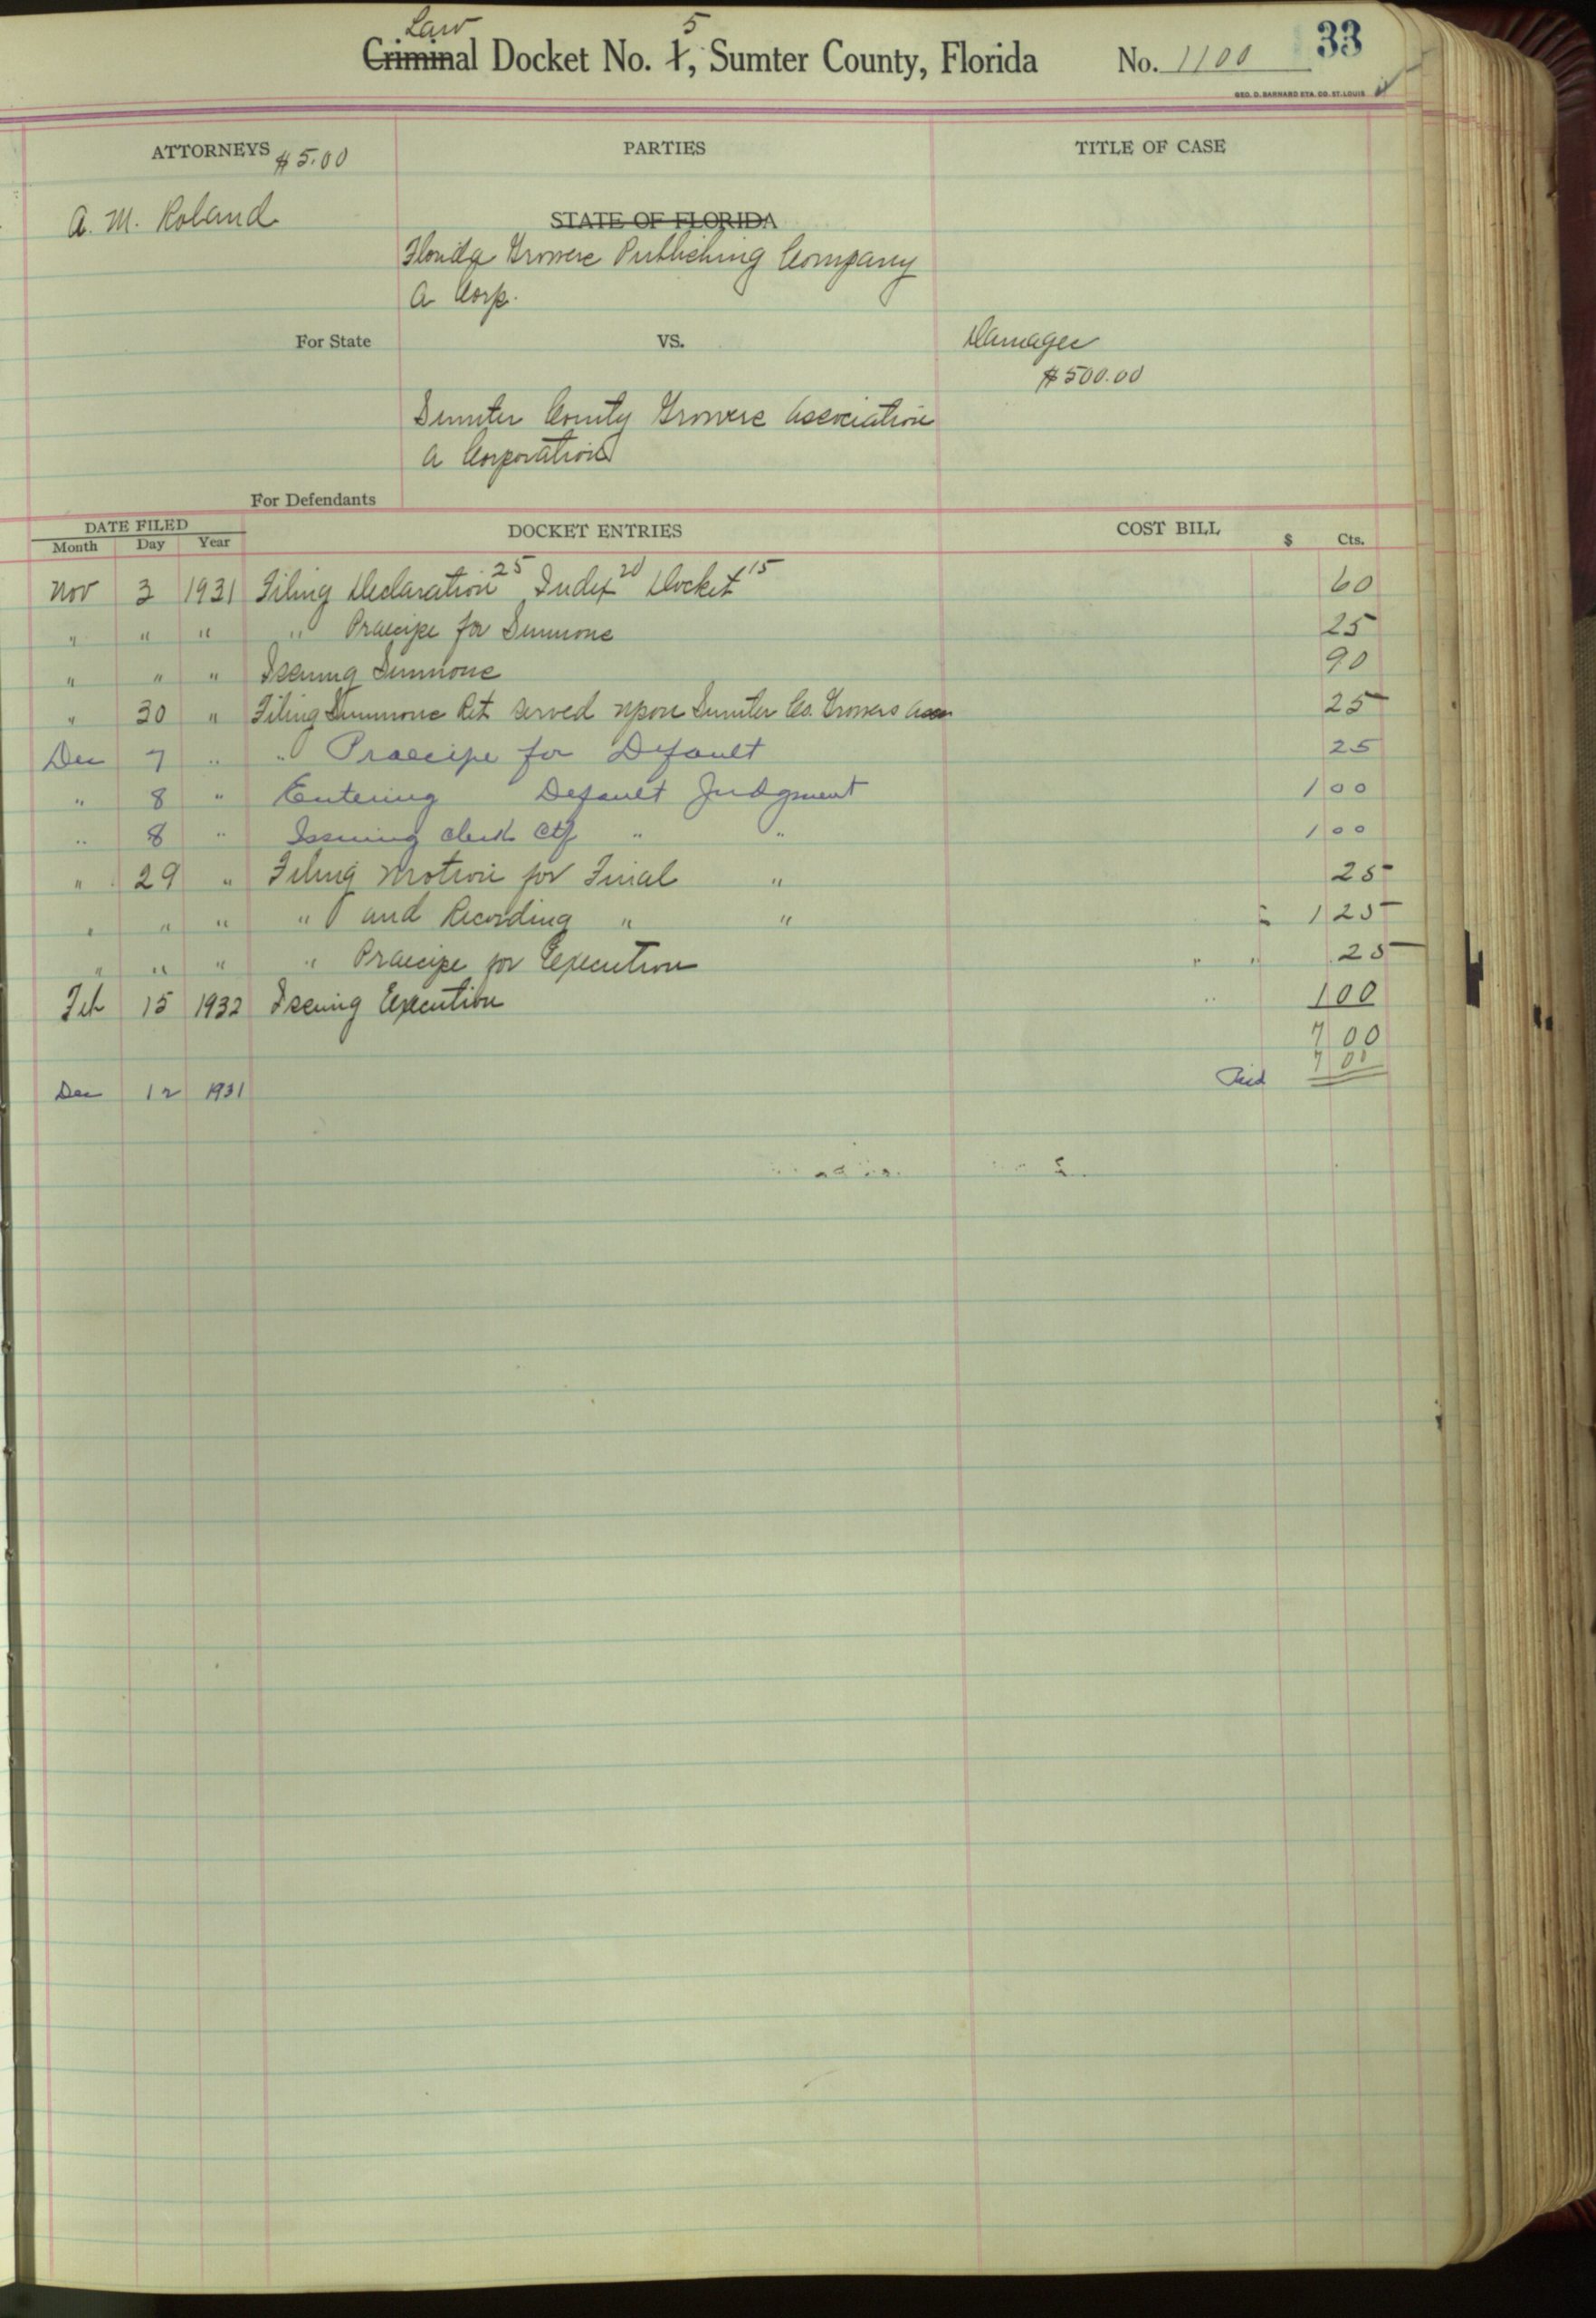 Law 5
Criminal Docket No. 1, Sumter County, Florida No. 1100 33
GEO. D. BARNARD STA. CO. ST. LOUIS
ATTORNEYS $5.00 PARTIES TITLE OF CASE
A. M. Roland STATE OF FLORIDA
Florida Growers Publishing Company
a Corp.
For State VS. Damages
$500.00
Sumter County Growers Association
a Corporation
For Defendants
DATE FILED DOCKET ENTRIES COST BILL $ Cts.
Month Day Year
Nov 3 1931 Filing Declaration 25 Index 20 Docket 15 60
" " " " Praecipe for Summons 25
" " " Issuing Summons 90
" 30 " Filing Summons Ret served upon Sumter Co. Growers Assn 25
Dec 7 " " Praecipe for Default 25
" 8 " Entering Default Judgment 1 00
" 8 " Issuing Clerk Ctf " " 1 00
" 29 " Filing Motion for Final " 25
" " " " and Recording " " 1 25
" " " " Praecipe for Execution 25
Feb 15 1932 Issuing Execution 1 00
7 00
Dec 12 1931 Paid 7 00